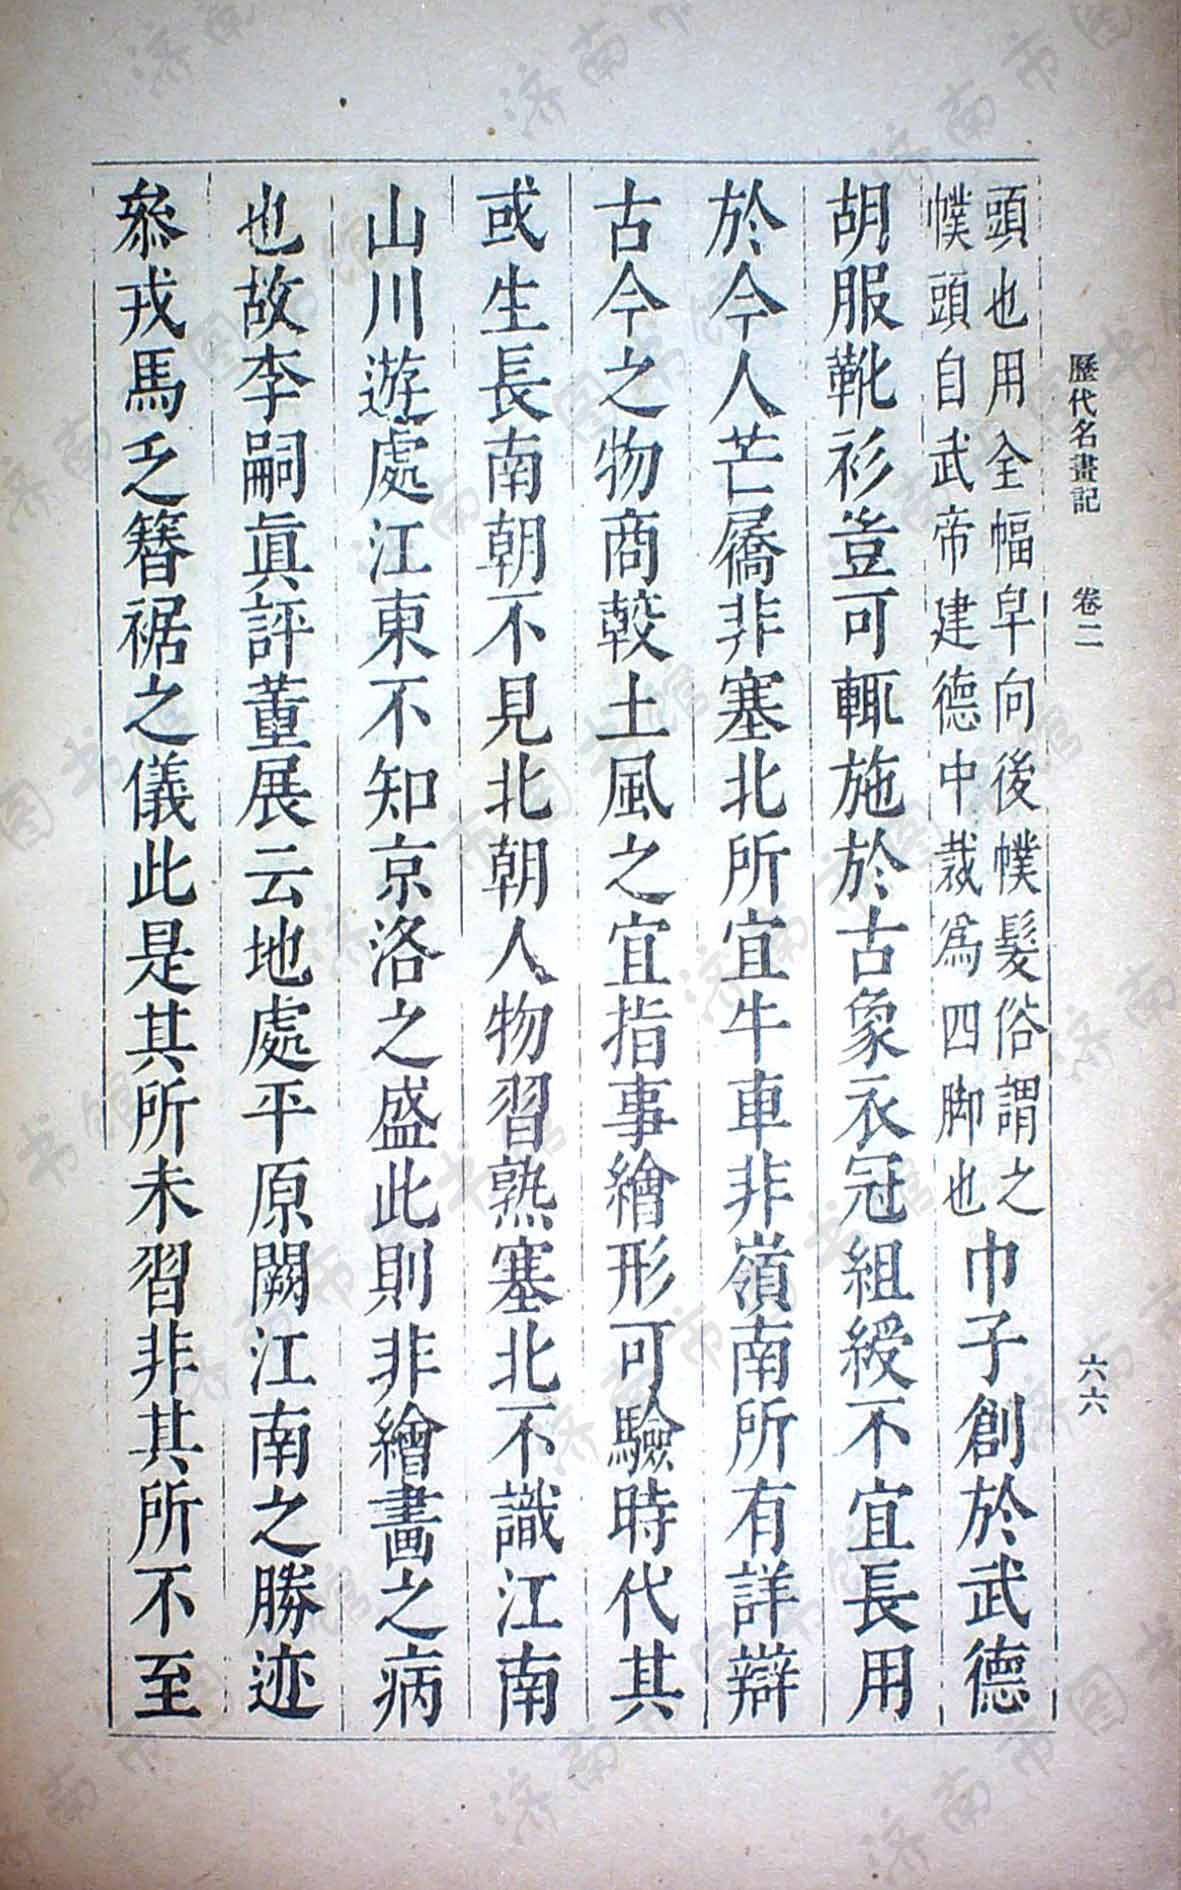 歷代名畫記 卷二 六六
頭也用全幅皁向後幞髮俗謂之
幞頭自武帝建德中裁爲四脚也
巾子創於武德
胡服靴衫豈可輒施於古象衣冠組綬不宜長用
於今人芒屩非塞北所宜牛車非嶺南所有詳辯
古今之物商較土風之宜指事繪形可驗時代其
或生長南朝不見北朝人物習熟塞北不識江南
山川遊處江東不知京洛之盛此則非繪畵之病
也故李嗣眞評董展云地處平原闕江南之勝迹
叅戎馬乏簪裾之儀此是其所未習非其所不至
济南市图书馆